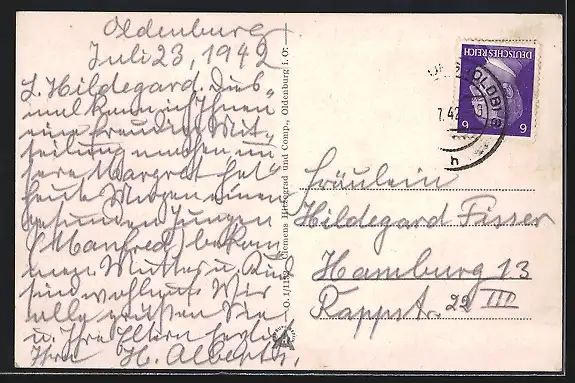 Oldenburg
Juli 23, 1942
L. Hildegard. Dies-
mal kann ich Ihnen
eine freudige Mit-
teilung machen un-
sere Margret hat
heute Morgen einen
gesunden Jungen
(Manfred) bekom-
men. Mutter u. Kind
sind wohlauf. Wir
alle grüßen Sie
u. Ihre Eltern herzl.
Ihre H. Alberts.
I. O. 1/1152 Clemens Hitzegrad und Comp., Oldenburg i. O.
DEUTSCHES REICH
6 6
(OLDB)
7.42
h
Fräulein
Hildegard Fisser
Hamburg 13
Rappstr. 22 III